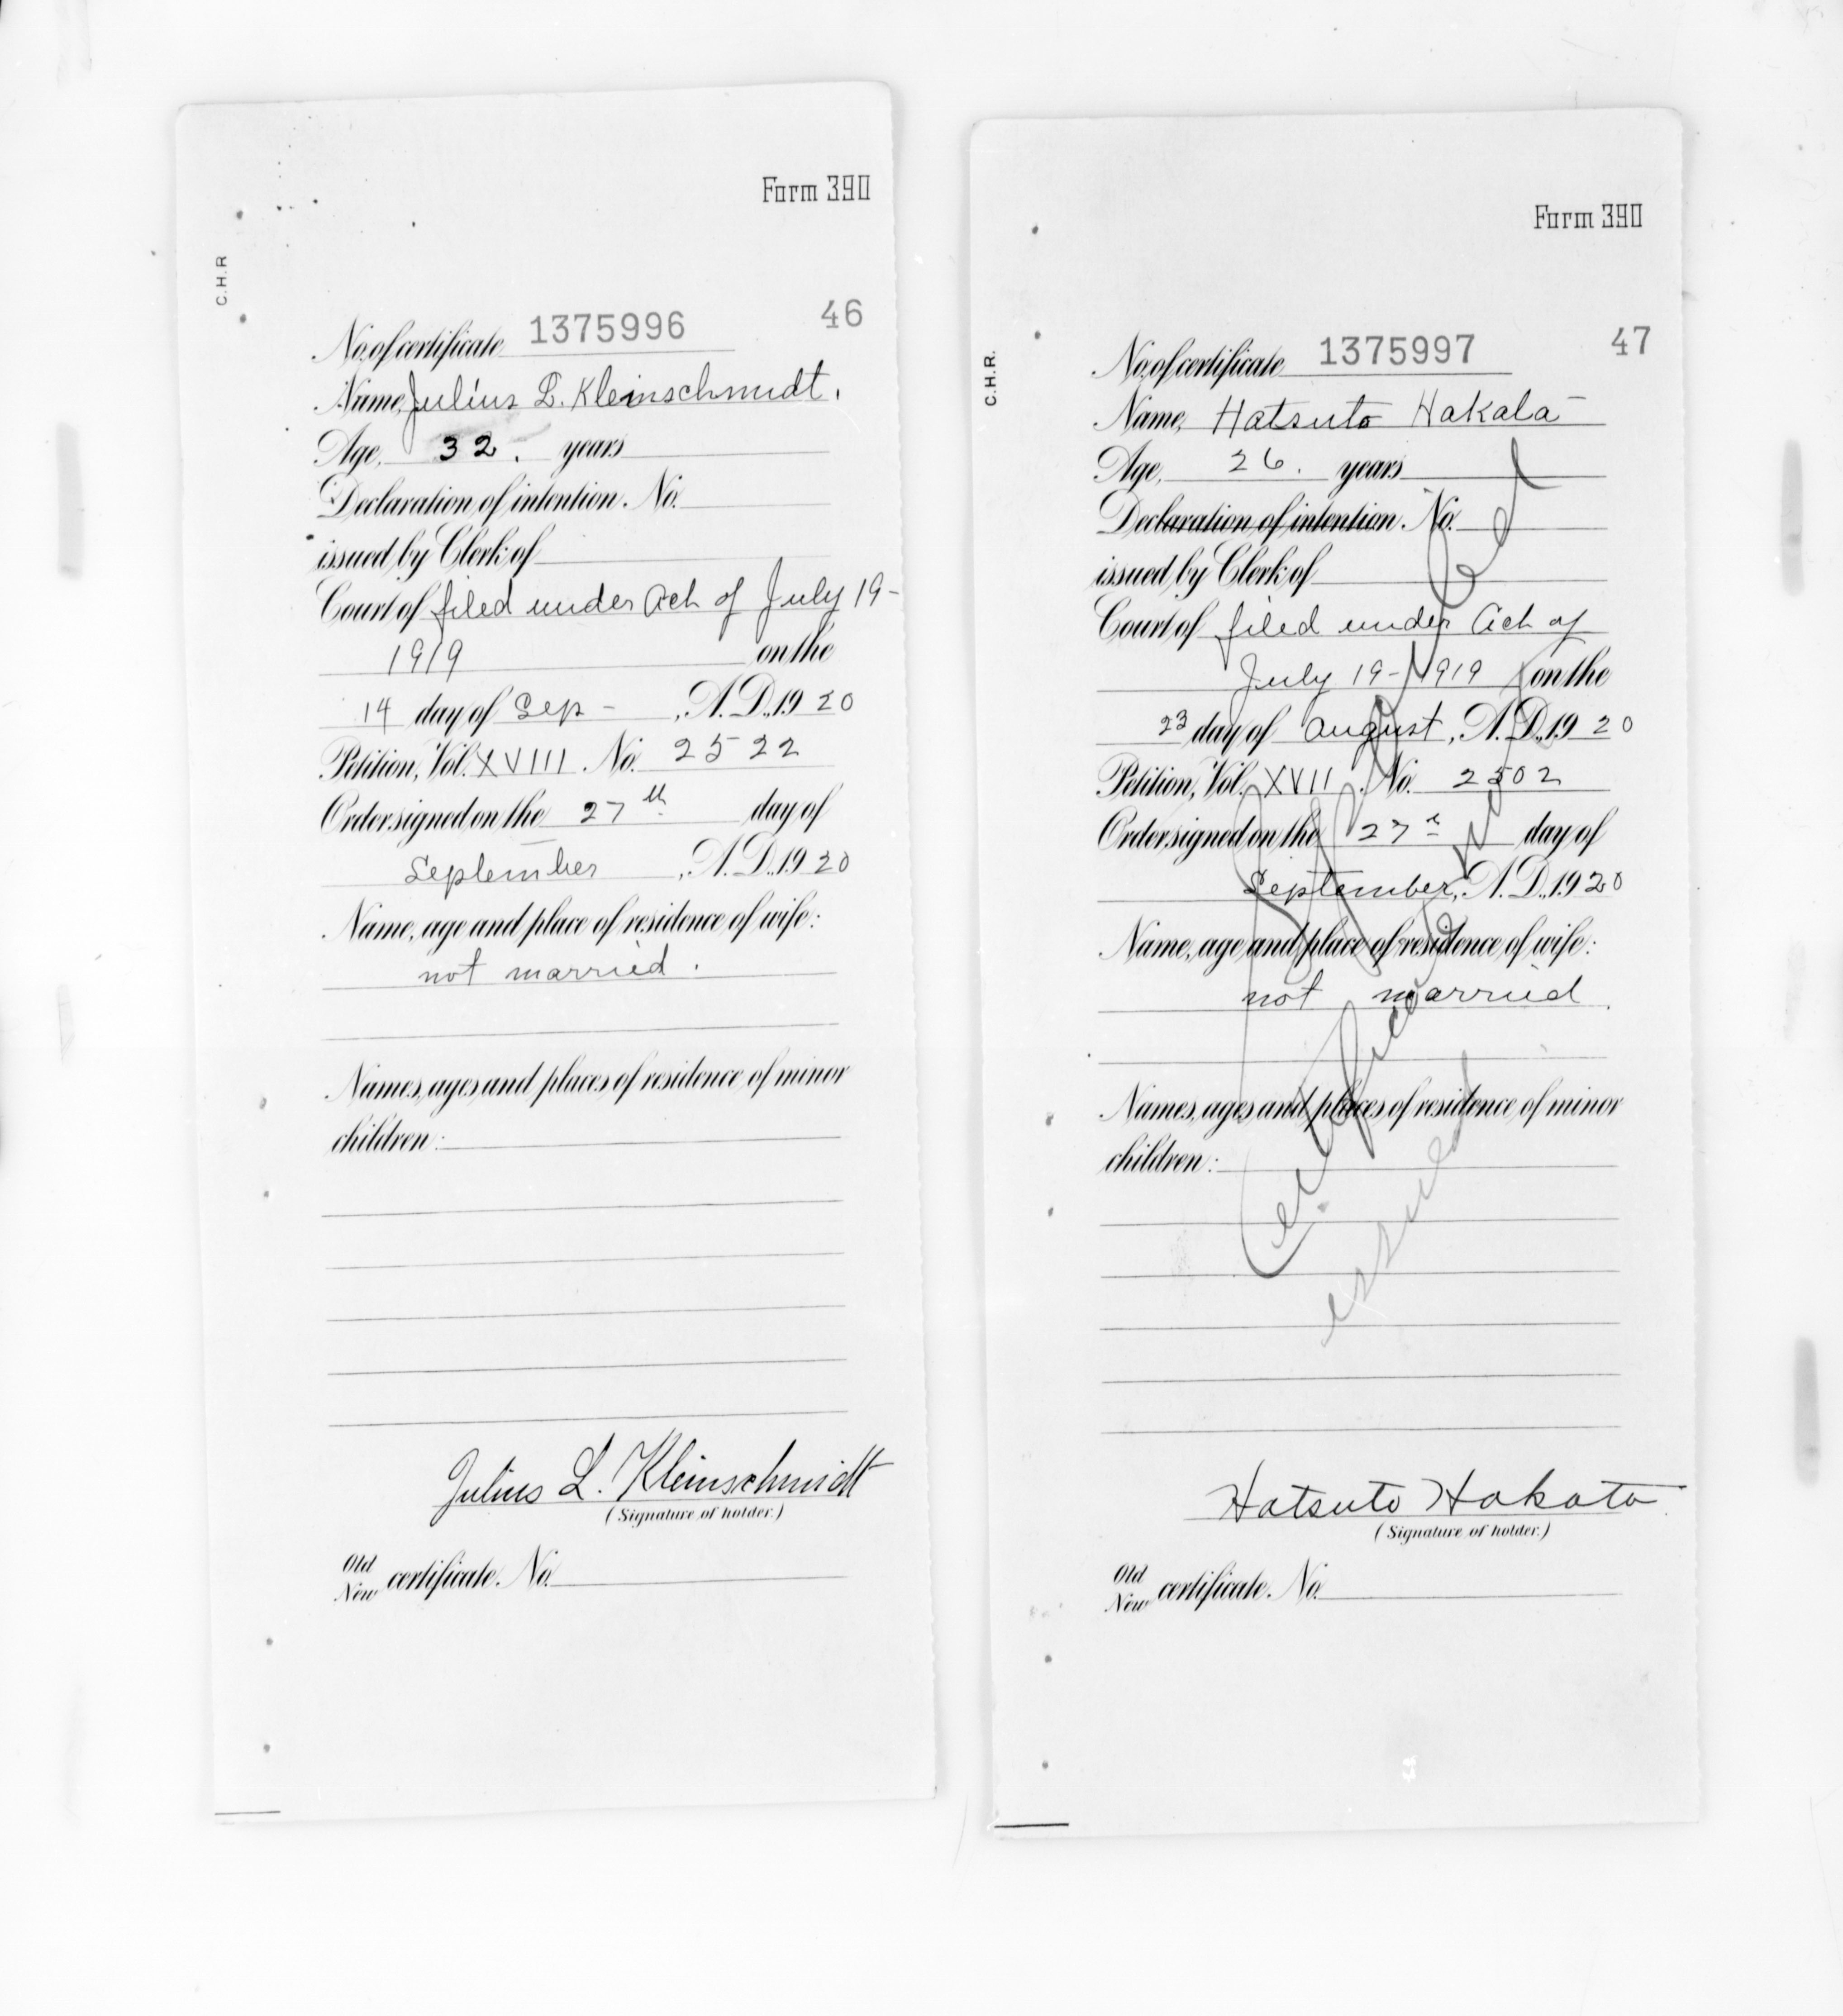 Form 390
C.H.R
46
No. of certificate 1375996
Name, Julius L. Kleinschmidt.
Age, 32. years
Declaration of intention. No.
issued by Clerk of
Court of filed under Act of July 19-
1919 on the
14 day of Sep - , A.D., 1920
Petition, Vol. XVIII. No. 2522
Order signed on the 27th day of
September , A.D., 1920
Name, age and place of residence of wife:
not married.
Names, ages and places of residence of minor
children:
Julius L. Kleinschmidt
(Signature of holder.)
Old
New certificate. No.
Form 390
C.H.R.
47
No. of certificate 1375997
Name, Hatsuto Hakata
Age, 26. years
Declaration of intention. No.
issued by Clerk of
Court of filed under Act of
July 19-1919 on the
23 day of August, A.D., 1920
Petition, Vol. XVII. No. 2502
Order signed on the 27th day of
September, A.D., 1920
Name, age and place of residence of wife:
not married.
Names, ages and places of residence of minor
children:
Cancelled
Certificate never
issued
Hatsuto Hakata
(Signature of holder.)
Old
New certificate. No.